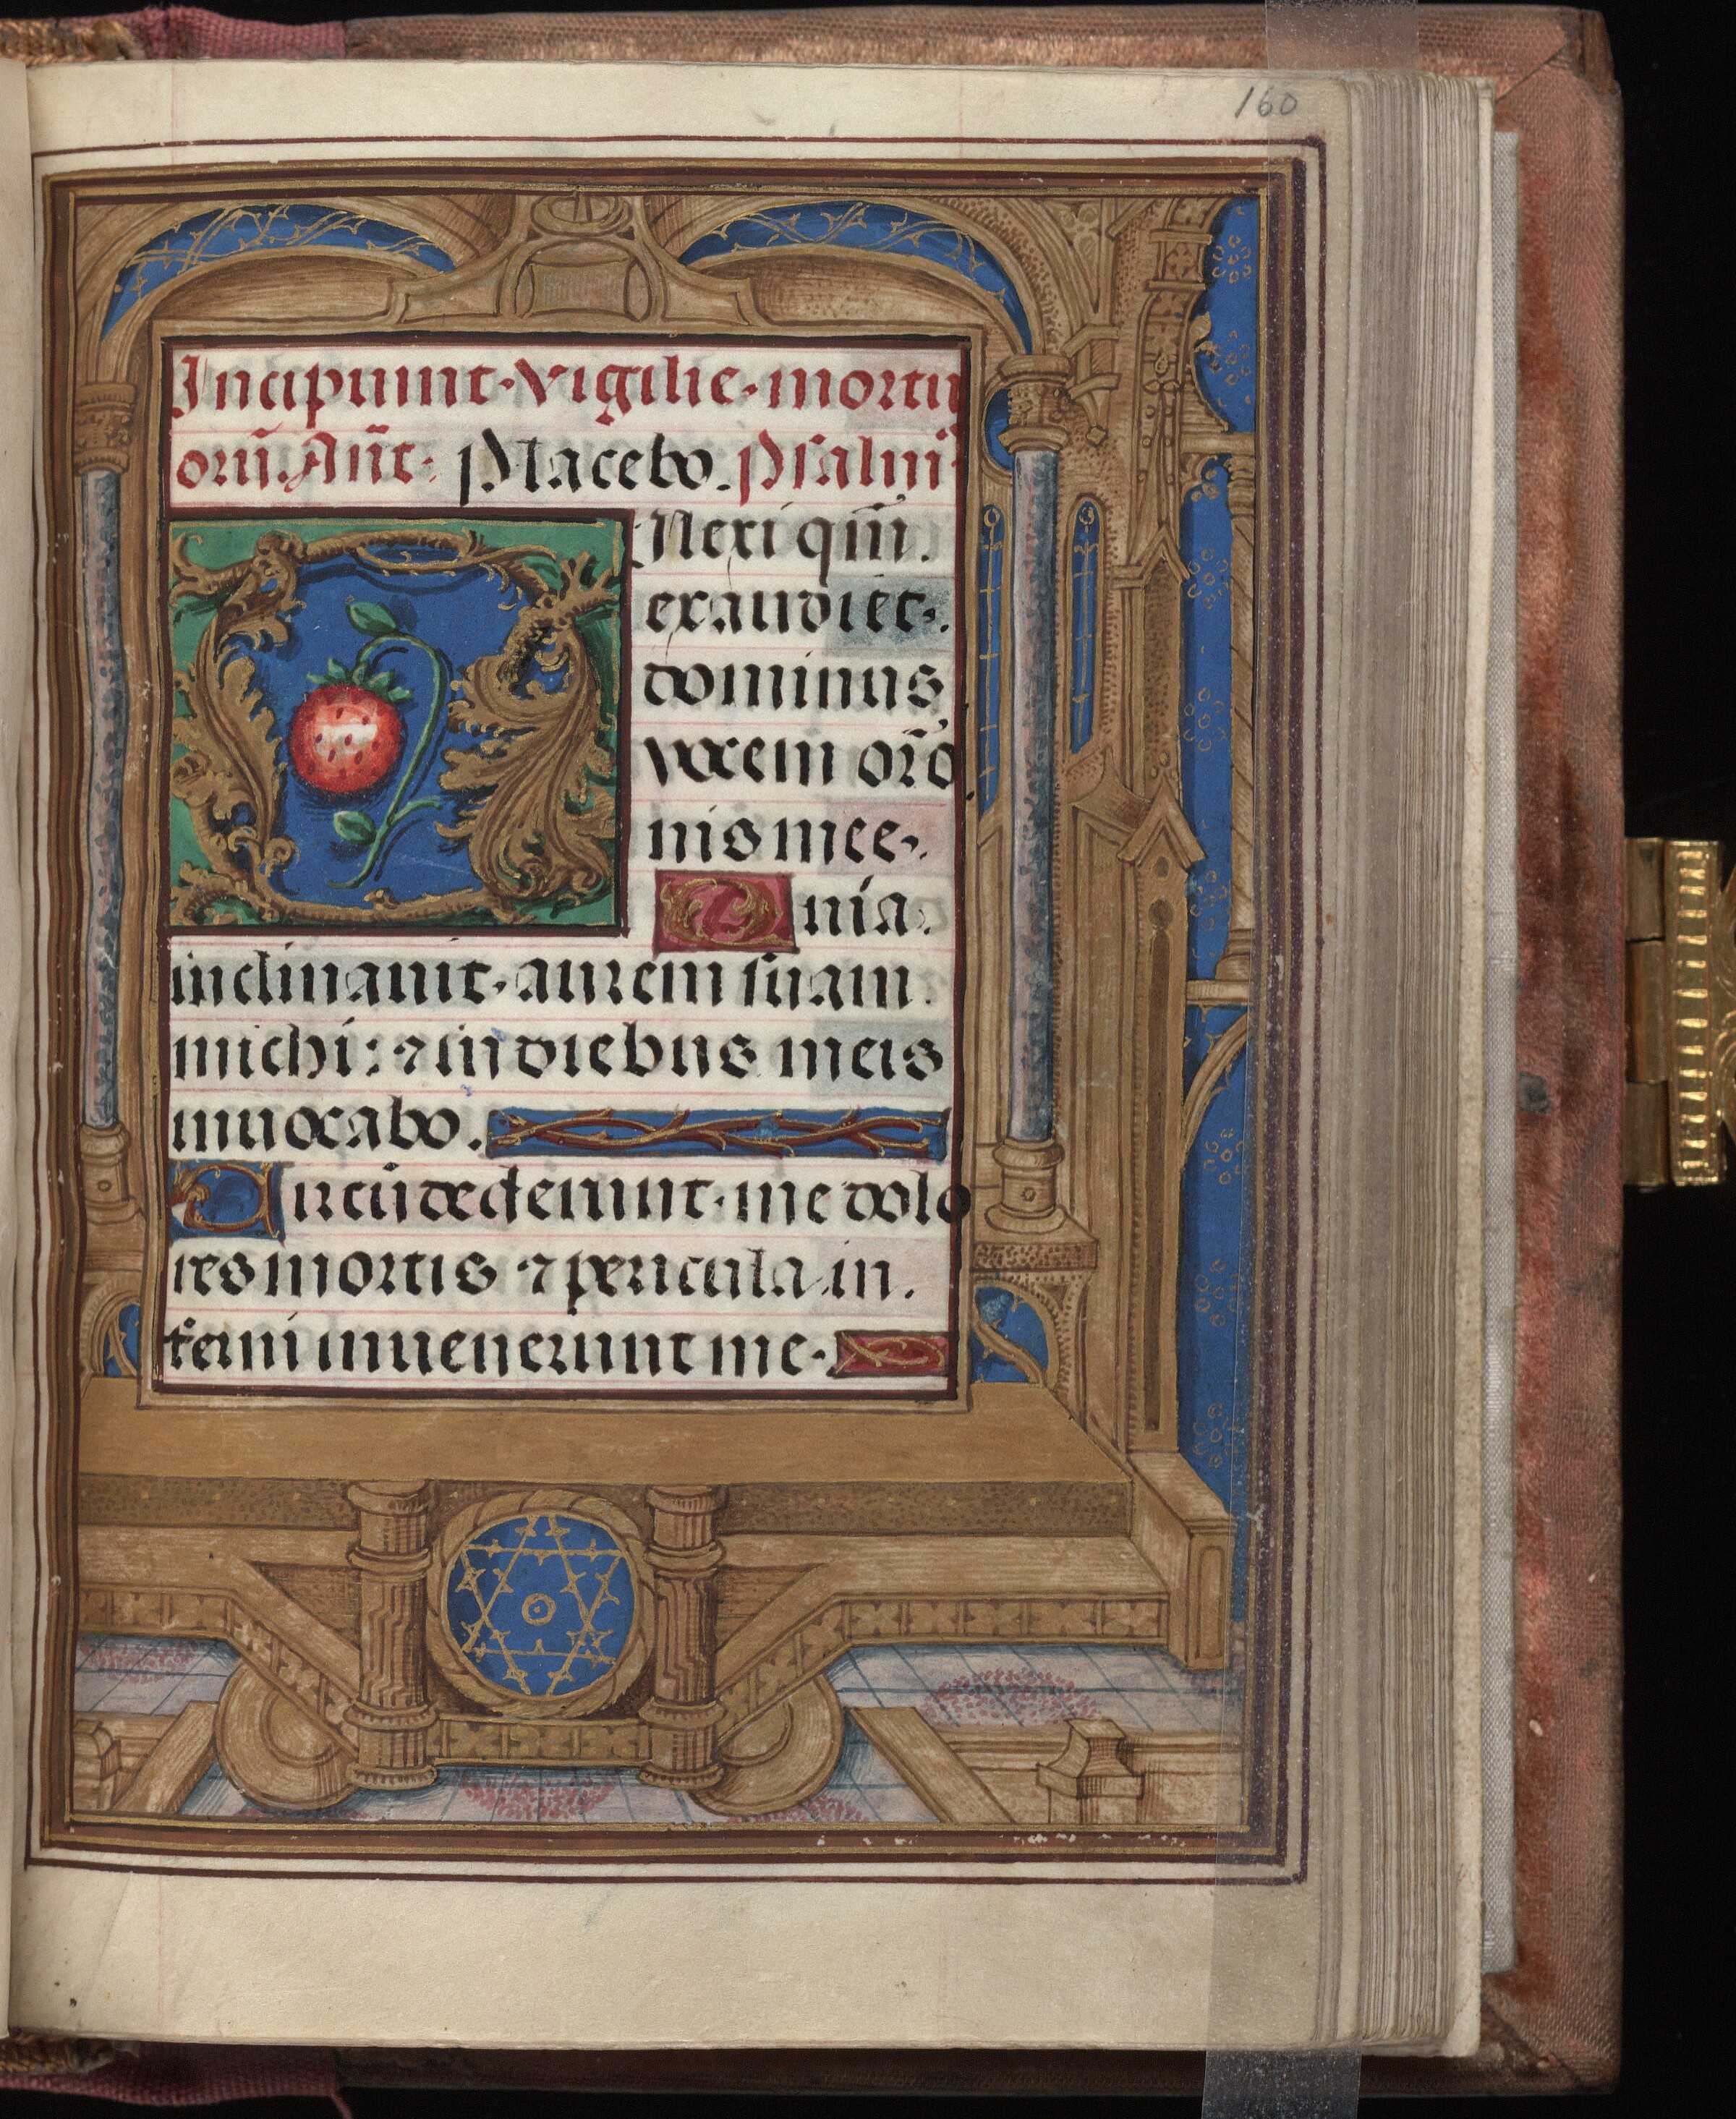 160
Incipiunt·vigilie·mortu
orū. Añt· Placebo. Psalm̄
Dilexi qm̄.
exaudiet·
dominus
vocem or̄o
nis mee·
Quia.
inclinauit·aurem suam.
michi: ⁊ in diebus meis
inuocabo.
Circūdederunt·me dolo
res mortis ⁊ pericula in.
ferni inuenerunt me·